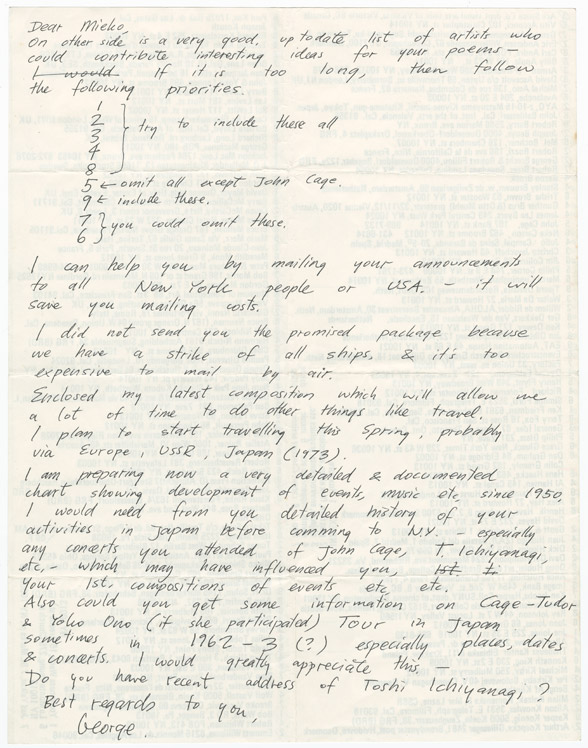 Dear Mieko,
On other side is a very good, up to date list of artists who
could contribute interesting ideas for your poems –
I would If it is too long, then follow
the following priorities.
1
2 } try to include these all
3
4
8
5 ← omit all except John Cage.
9 ← include these.
7 } you could omit these.
6
I can help you by mailing your announcements
to all New York people or USA. – it will
save you mailing costs.
I did not send you the promised package because
we have a strike of all ships, & it's too
expensive to mail by air.
Enclosed my latest composition which will allow me
a lot of time to do other things like travel.
I plan to start travelling this Spring, probably
via Europe, USSR, Japan (1973).
I am preparing now a very detailed & documented
chart showing development of events, music etc, since 1950.
I would need from you detailed history of your
activities in Japan before comming to N.Y. – especially
any concerts you attended of John Cage, T. Ichiyanagi,
etc, – which may have influenced you, 1st.
your 1st. compositions of events etc, etc.
Also could you get some information on Cage-Tudor
& Yoko Ono (if she participated) Tour in Japan
sometimes in 1962-3 (?) especially places, dates
& concerts. I would greatly appreciate this. –
Do you have recent address of Toshi Ichiyanagi ?
Best regards to you,
George.